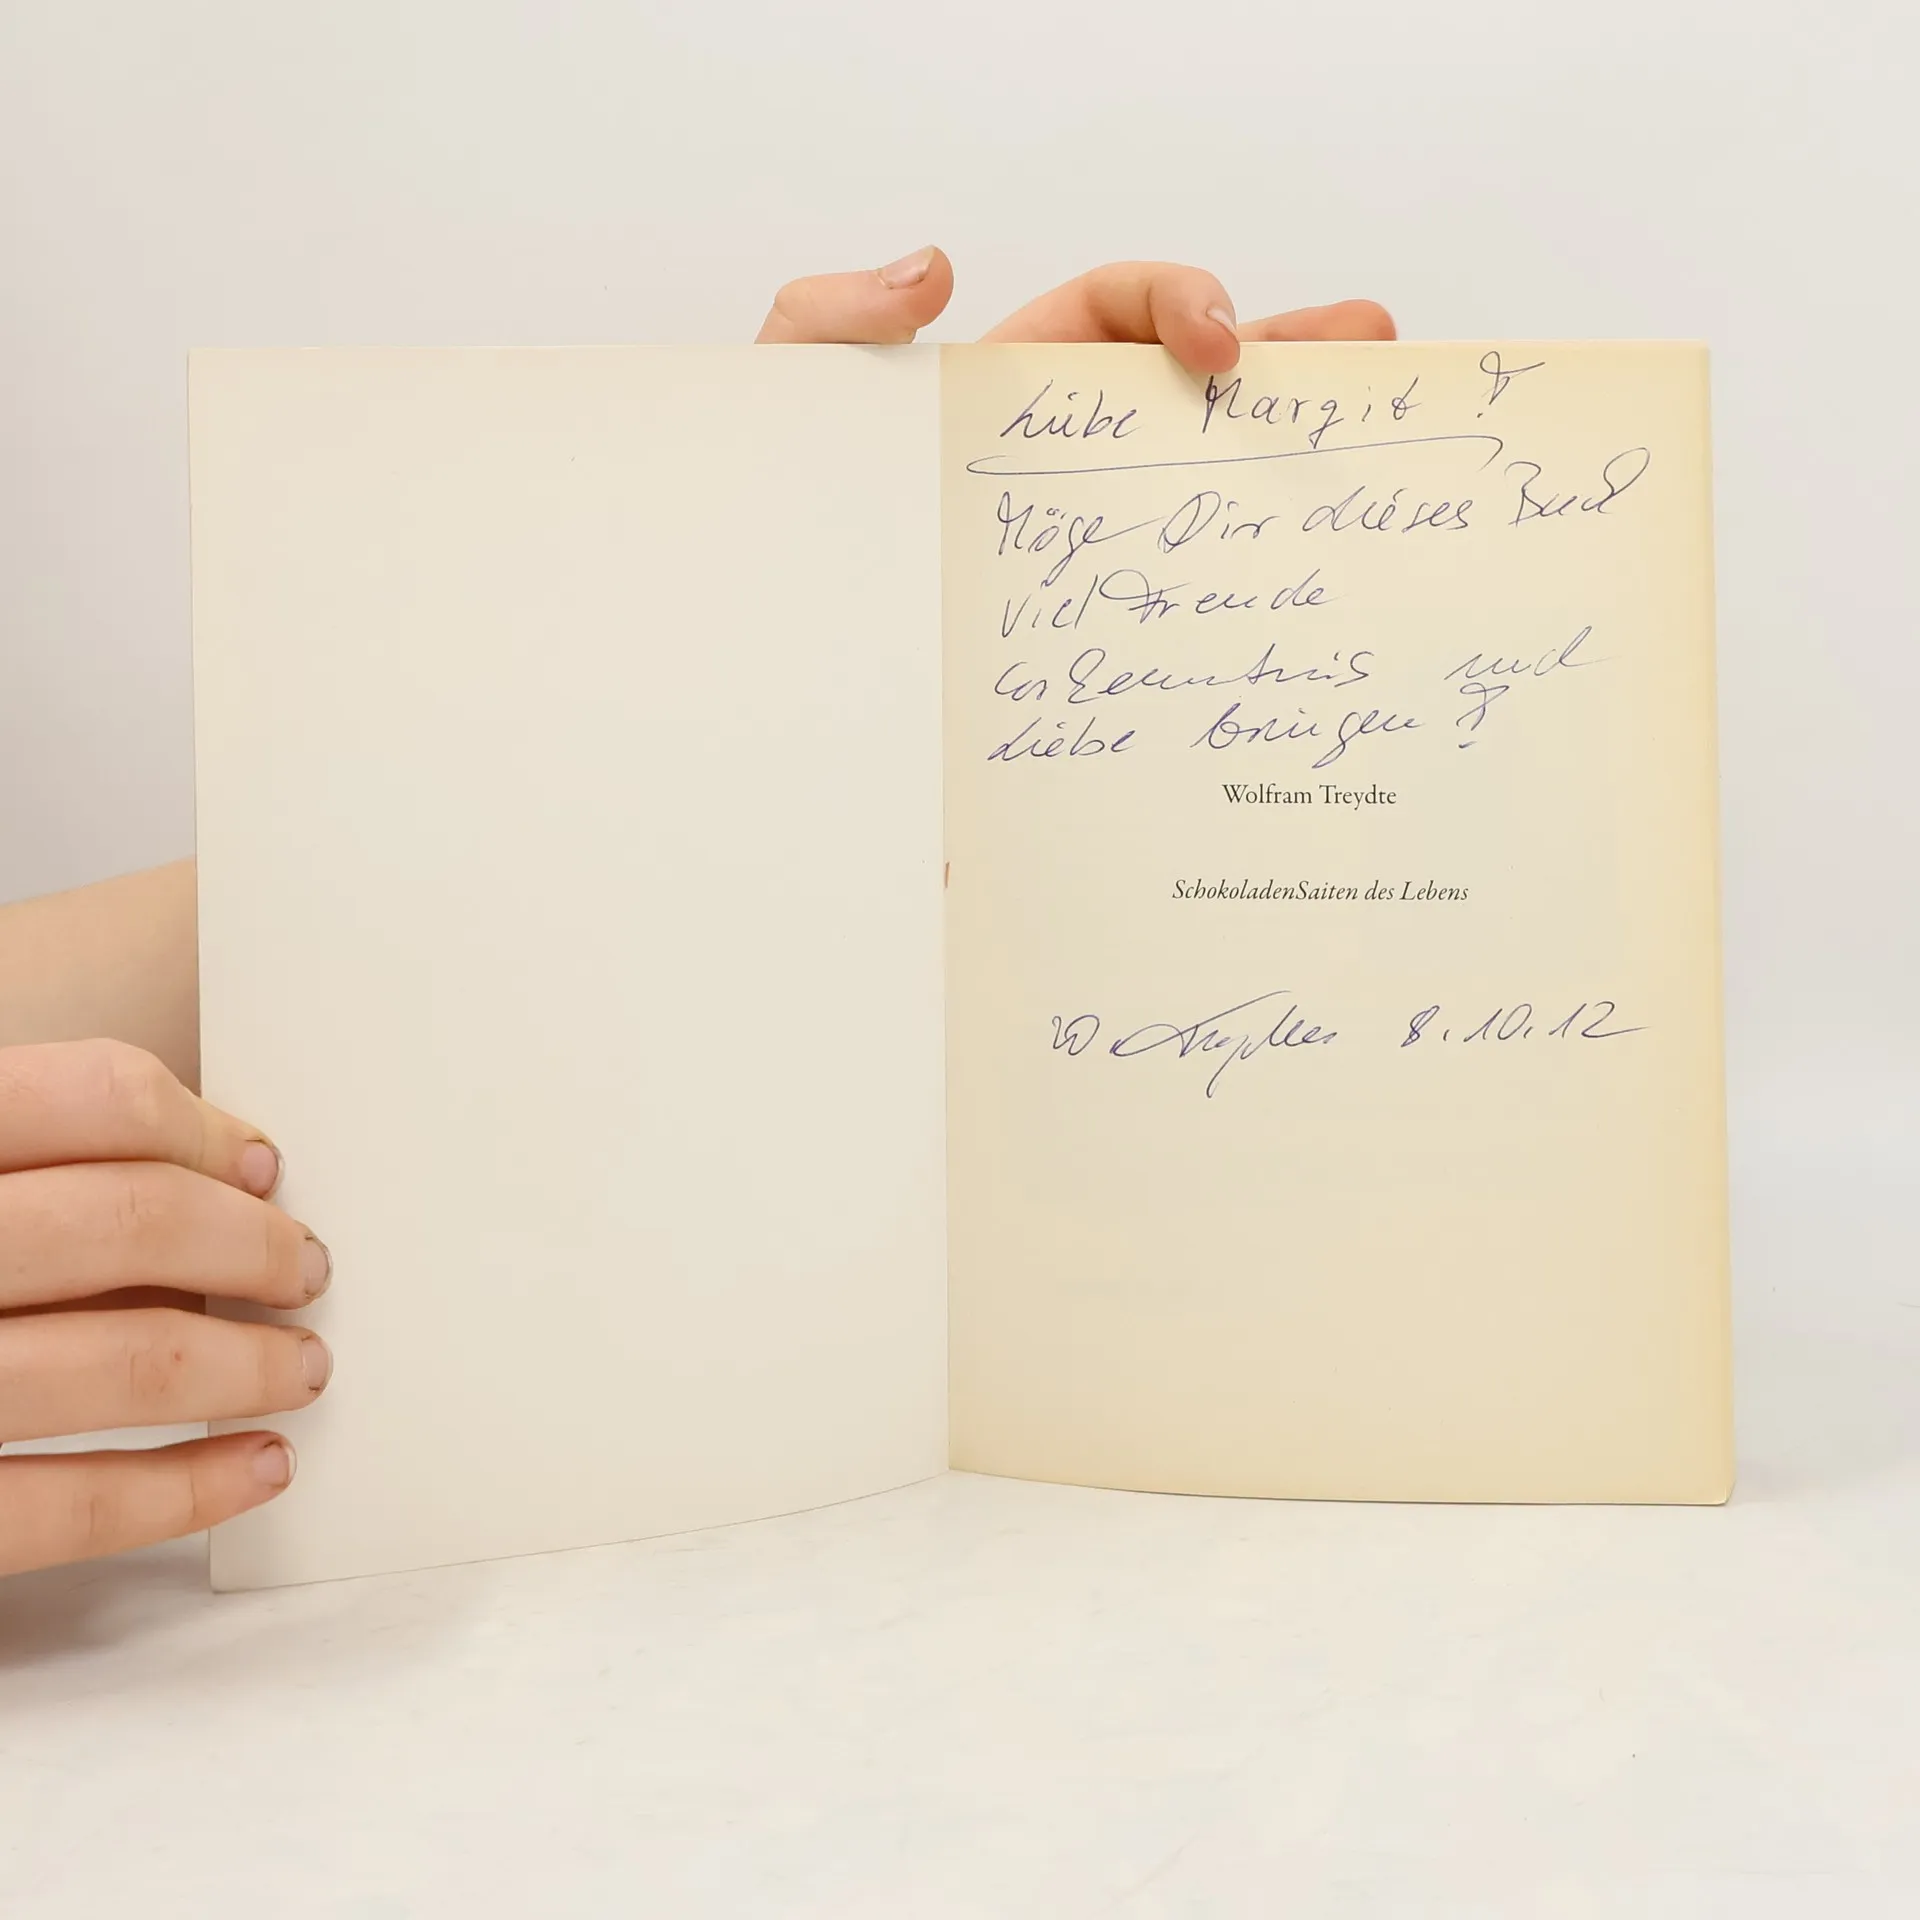 Liebe Margit !
Möge Dir dieses Buch
viel Freude
Erkenntnis und
Liebe bringen !
Wolfram Treydte
SchokoladenSaiten des Lebens
W. Treydte 8.10.12